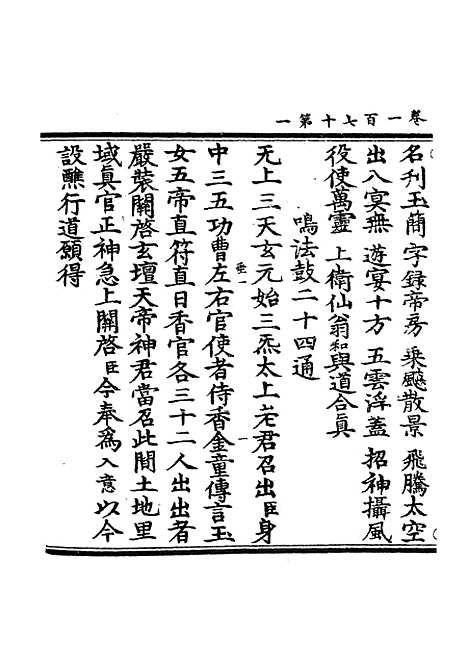 卷一百七十第一
名刋玉蕳 字録帝房 乘飈散景 飛騰太空
出入冥無 遊宴十方 五雲浮蓋 招神攝風
役使萬靈 上衛仙翁和與道合眞
鳴法鼓二十四通
无上三天玄元始三炁太上老君召出臣身
中三五功曹左右官使者侍香金童傳言玉
女五帝直符直日香官各三十二人出出者
嚴裝關啓玄壇天帝神君當召此間土地里
域眞官正神急上關啓臣今奉為入意以今
設醮行道願得